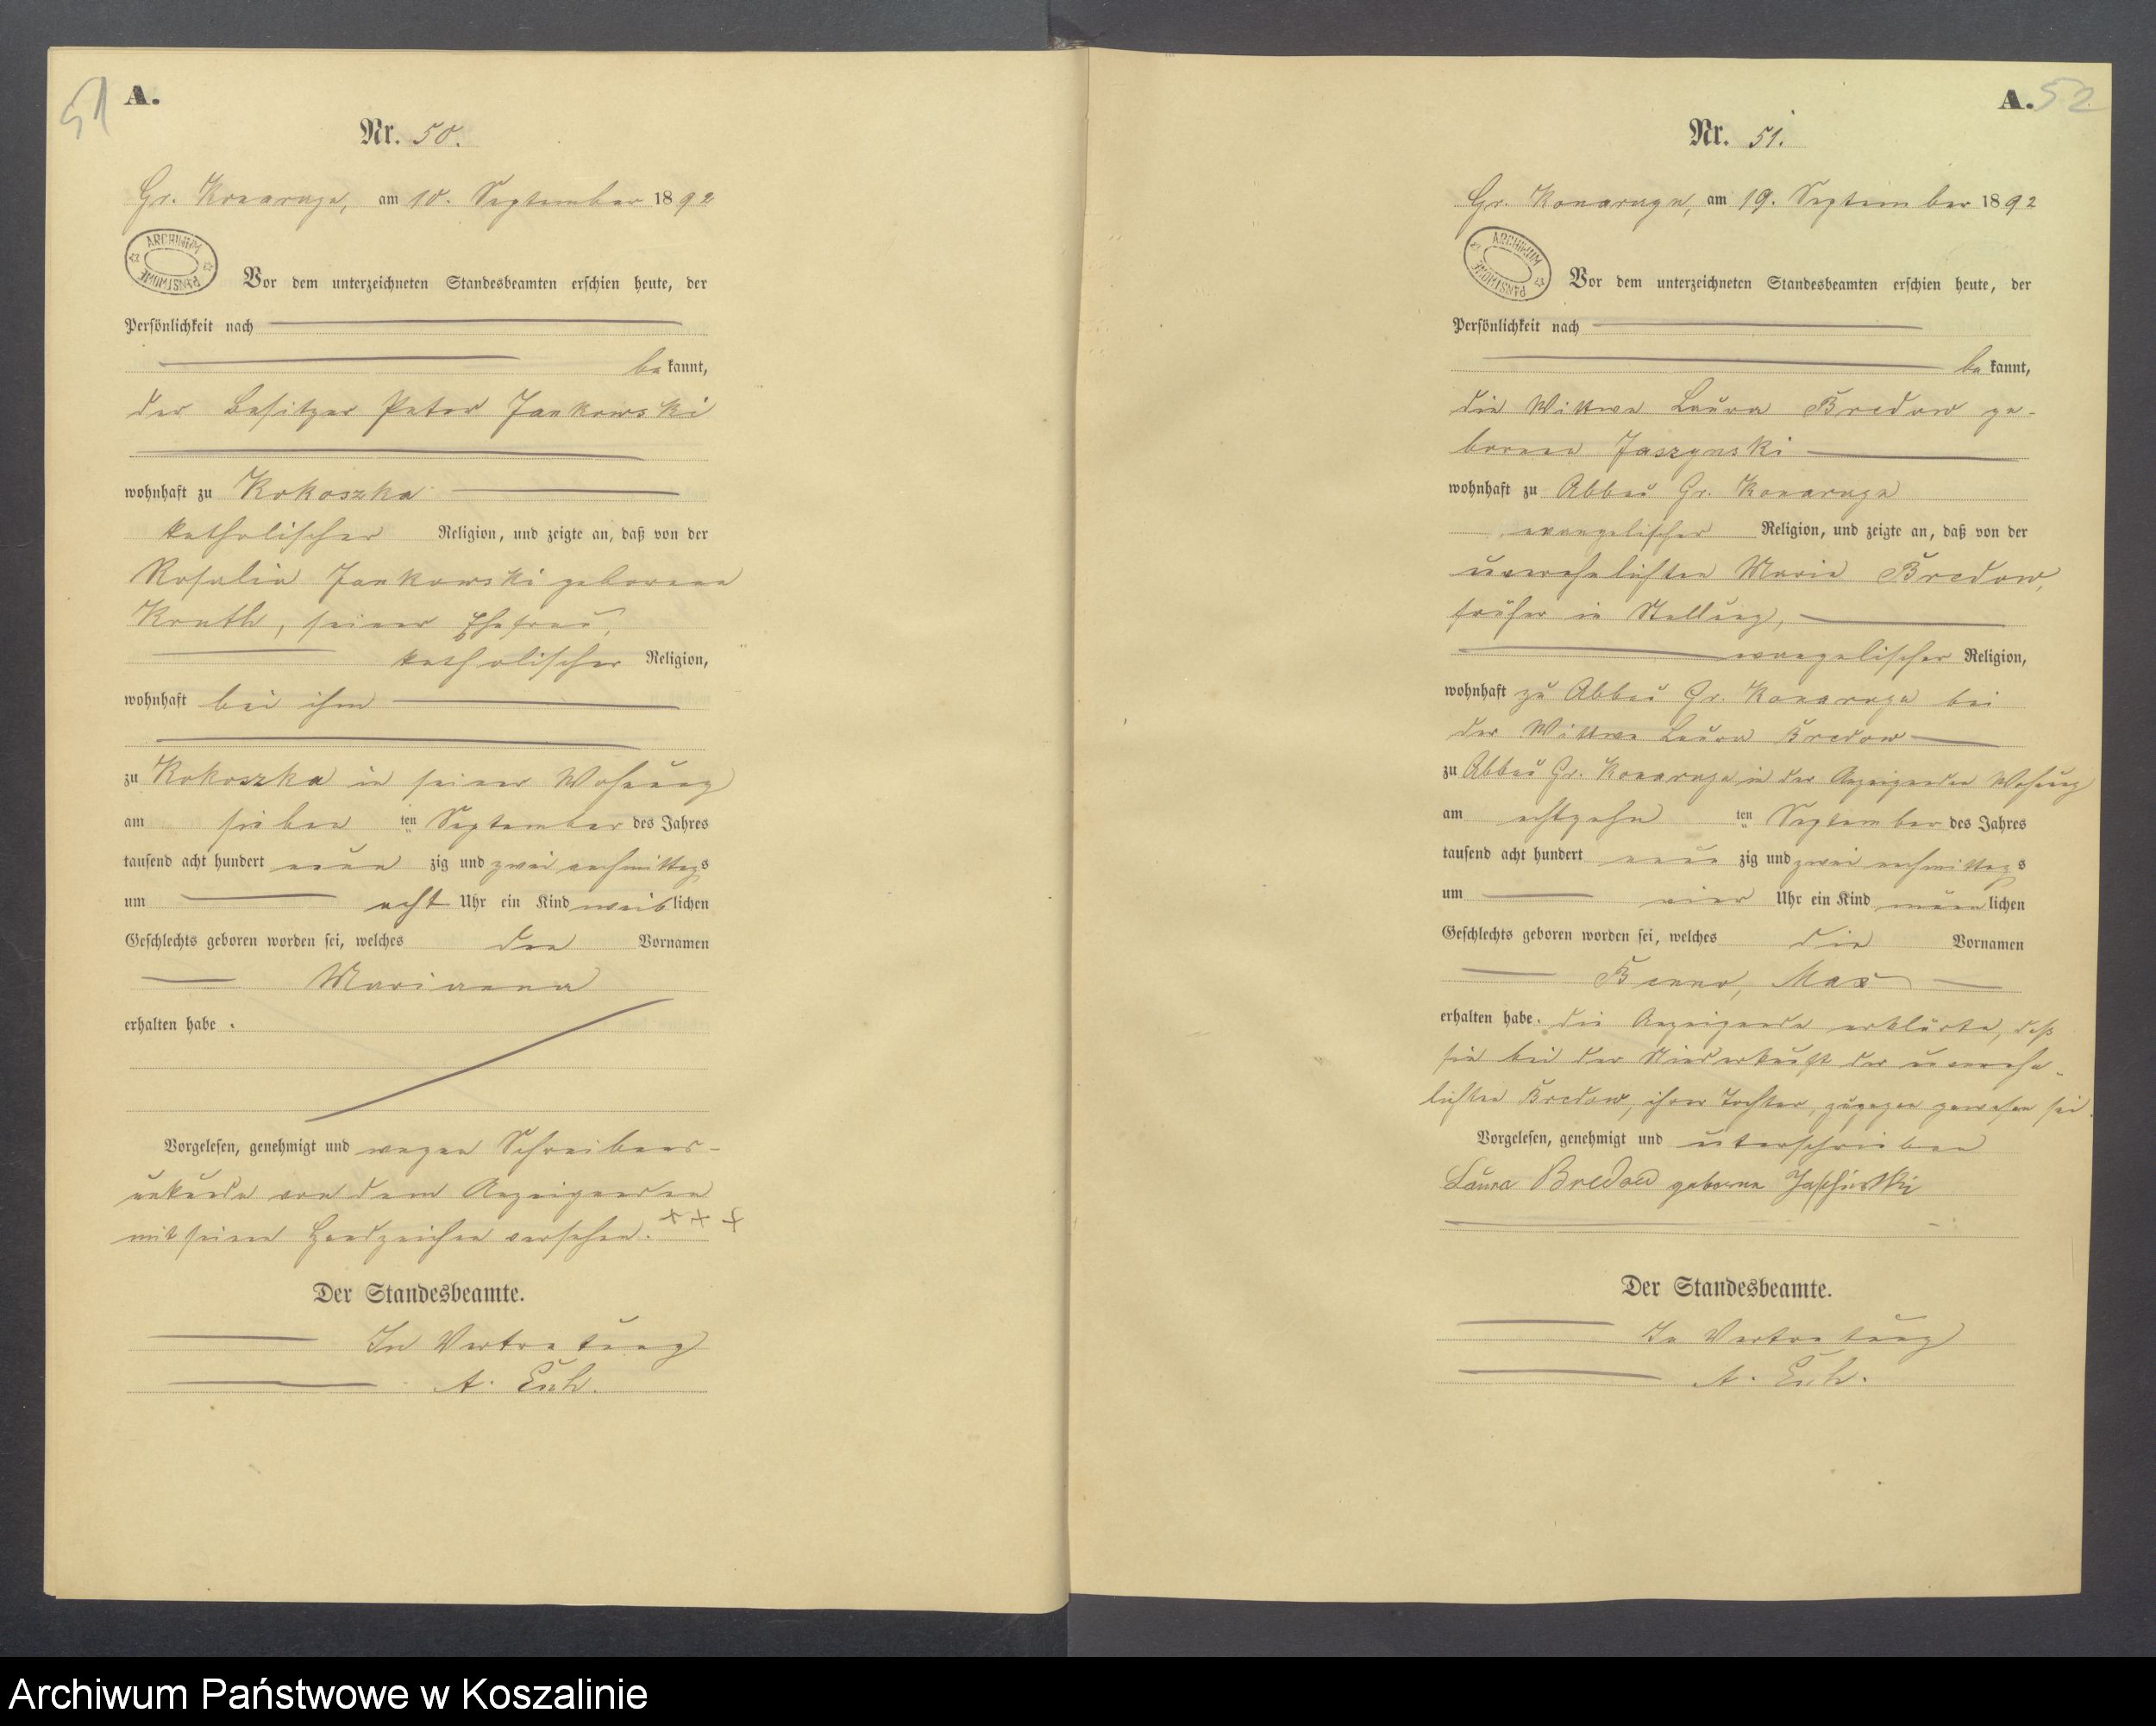 51
A.
Nr. 50.
Gr. Konarzyn, am 10. September 1892
ARCHIWUM PAŃSTWOWE
Vor dem unterzeichneten Standesbeamten erschien heute, der
Persönlichkeit nach
bekannt,
der Besitzer Peter Jankowski
wohnhaft zu Kokoszka
katholischer Religion, und zeigte an, daß von der
Rosalia Jankowski geborene
Knuth, seiner Ehefrau,
katholischer Religion,
wohnhaft bei ihm
zu Kokoszka in seiner Wohnung
am sieben ten September des Jahres
tausend acht hundert neun zig und zwei nachmittags
um acht Uhr ein Kind weiblichen
Geschlechts geboren worden sei, welches den Vornamen
Marianna
erhalten habe.
Vorgelesen, genehmigt und wegen Schreibens-
unkunde von dem Anzeigenden
mit seinem Handzeichen versehen. +++
Der Standesbeamte.
In Vertretung
A.
A. 52
Nr. 51.
Gr. Konarzyn, am 19. September 1892
ARCHIWUM PAŃSTWOWE
Vor dem unterzeichneten Standesbeamten erschien heute, der
Persönlichkeit nach
bekannt,
die Wittwe Laura Bredow ge-
borene Jaszynski
wohnhaft zu Abbau Gr. Konarzyn
evangelischer Religion, und zeigte an, daß von der
unverehelichten Marie Bredow,
früher in Stellung,
evangelischer Religion,
wohnhaft zu Abbau Gr. Konarzyn bei
der Wittwe Laura Bredow
zu Abbau Gr. Konarzyn in der Anzeigenden Wohnung
am achtzehn ten September des Jahres
tausend acht hundert neun zig und zwei nachmittags
um vier Uhr ein Kind männlichen
Geschlechts geboren worden sei, welches die Vornamen
Benno, Max
erhalten habe. die Anzeigende erklärte, daß
sie bei der Niederkunft der unverehe-
lichten Bredow, ihrer Tochter, zugegen gewesen sei.
Vorgelesen, genehmigt und unterschrieben
Laura Bredow geborene Jaschinski
Der Standesbeamte.
In Vertretung
A.
Archiwum Państwowe w Koszalinie